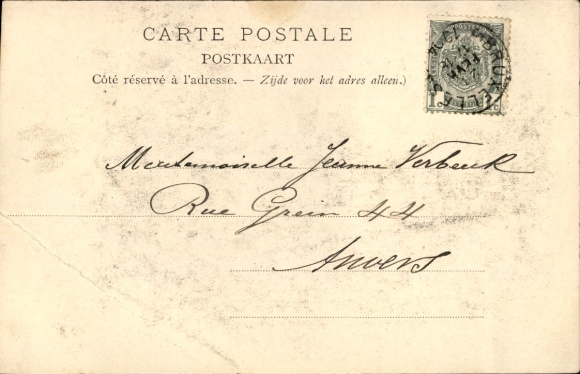 CARTE POSTALE
POSTKAART
Côté réservé à l'adresse. — Zijde voor het adres alleen.)
BRUXELLES
1
Mademoiselle Jeanne Verbeeck
Rue Grein 44
Anvers